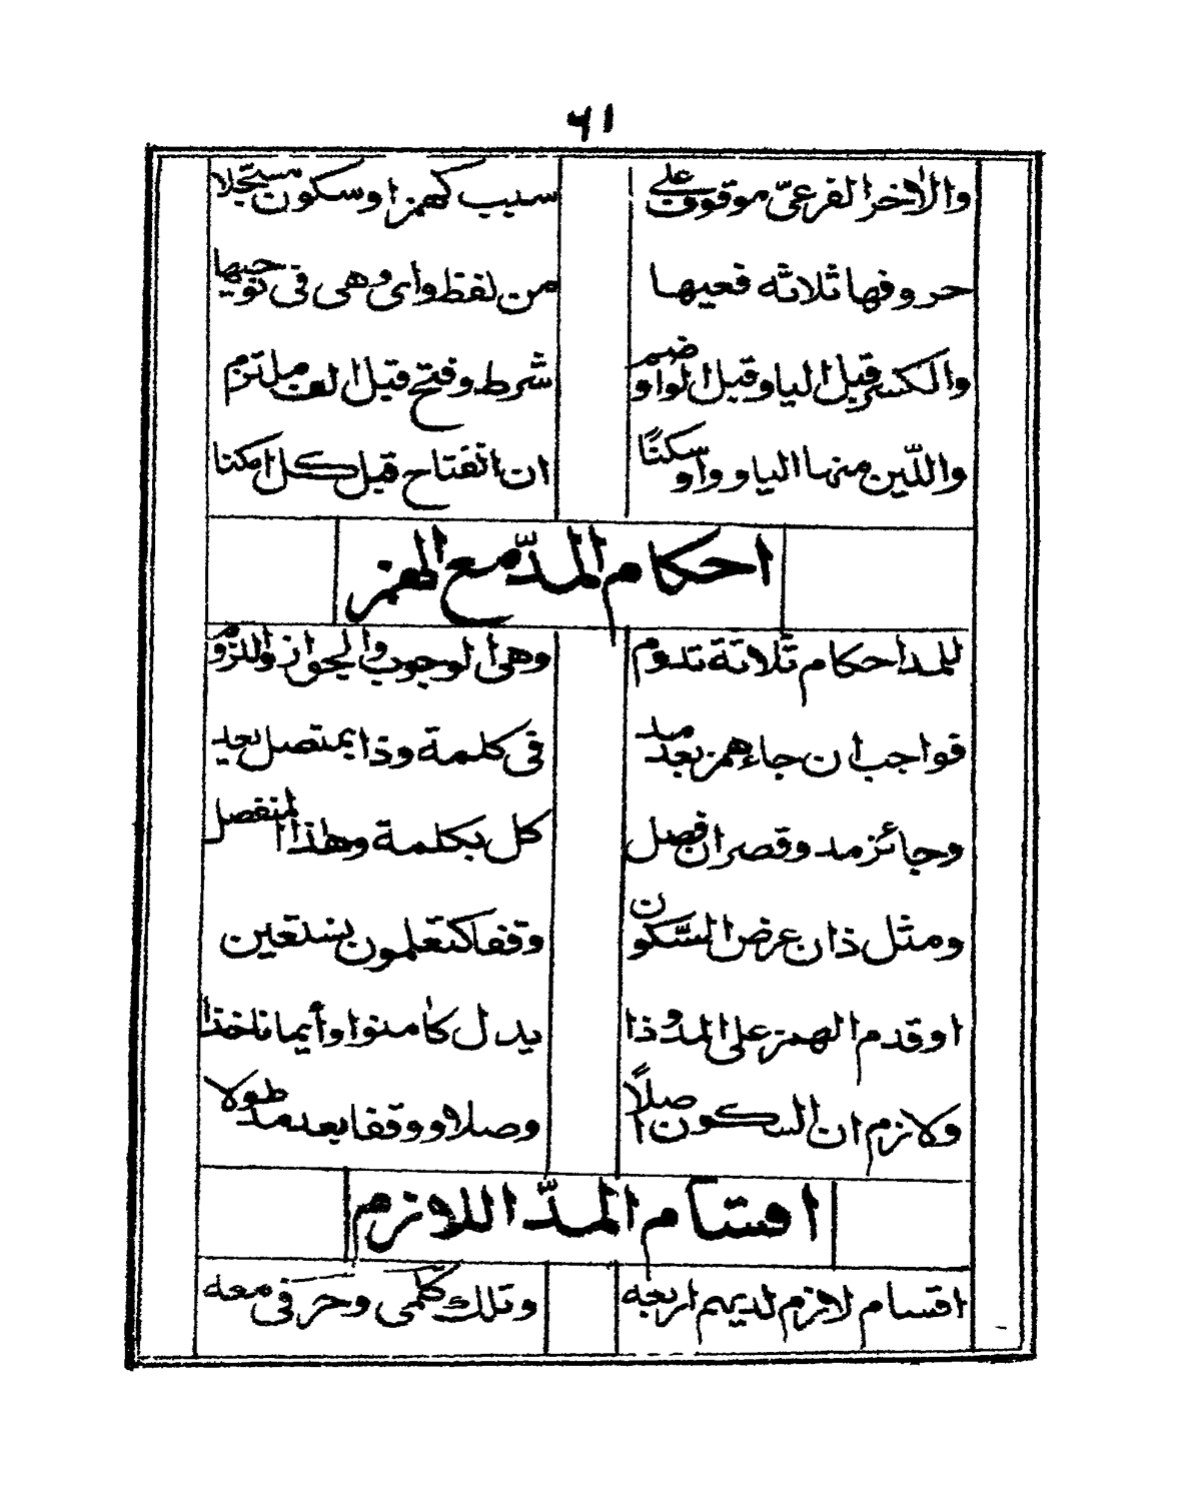 ٦١
والاخر الفرعىّ موقوف على سبب كهمز او سكون مسجّلا
حروفها ثلاثة فعيها من لفظ واى وهى فى نوحيها
والكسر قبل اليا وقبل الواو ضم شرط وفتح قبل الف ملتزم
واللّين منها اليا وواو سكنًا ان انفتاح قبل كل امكنا
احكام المدّ مع الهمز
للمد احكام ثلاثة تدوم وهى الوجوب والجواز واللزوم
فواجب ان جاء همز بعد مد فى كلمة وذا بمتصل يعد
وجائز مد وقصر ان فصل كل بكلمة وهذا المنفصل
ومثل ذا ان عرض السّكون وقفا كتعلمون نستعين
او قدم الهمز على المد وذا بدل كاٰمنوا وأيمانا خذا
ولازم ان السكون اصلًا وصلا ووقفا بعد مد طولا
اقسام المدّ اللازم
اقسام لازم لديهم اربعه وتلك كلمى وحرفى معه